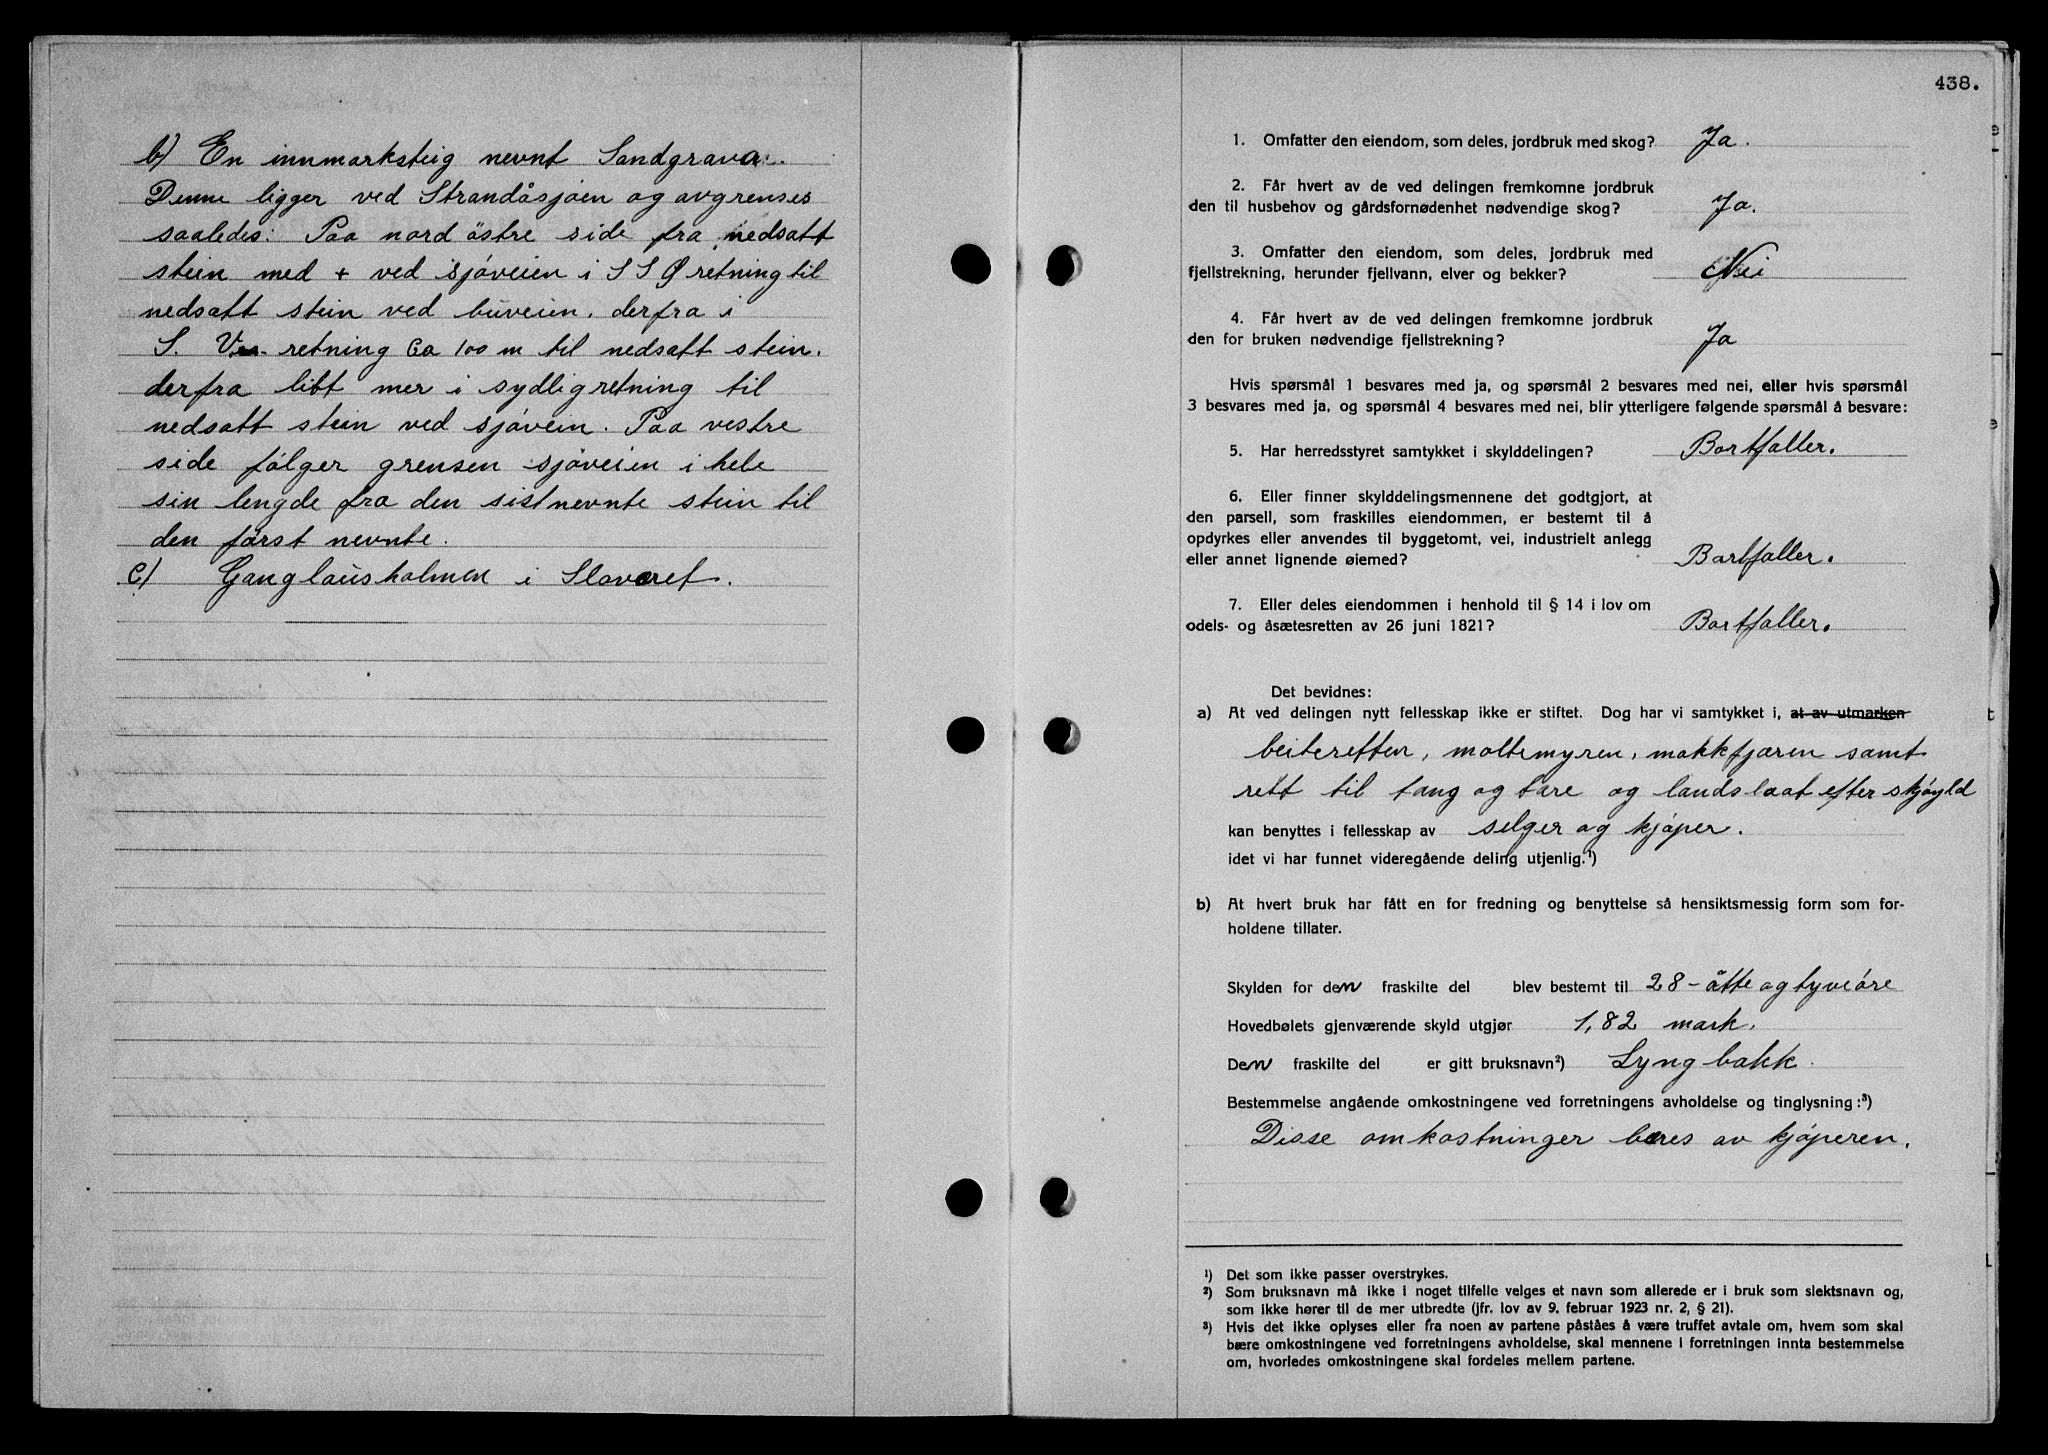 b) En innmarksteig nevnt Sandgrava.
Denne ligger ved Strandåsjøen og avgrenses
saaledes: Paa nord östre side fra nedsatt
stein med + ved sjöveien i S S Ø retning til
nedsatt stein ved buveien. derfra i
S. V. retning Ca 100 m til nedsatt stein.
derfra litt mer i sydlig retning til
nedsatt stein ved sjövein. Paa vestre
side fölger grensen sjöveien i hele
sin lengde fra den sistnevnte stein til
den först nevnte.
c) Ganglausholmen i Slaværet.
438.
1. Omfatter den eiendom, som deles, jordbruk med skog? Ja.
2. Får hvert av de ved delingen fremkomne jordbruk
den til husbehov og gårdsfornødenhet nødvendige skog? Ja.
3. Omfatter den eiendom, som deles, jordbruk med
fjellstrekning, herunder fjellvann, elver og bekker? Nei
4. Får hvert av de ved delingen fremkomne jordbruk
den for bruken nødvendige fjellstrekning? Ja
Hvis spørsmål 1 besvares med ja, og spørsmål 2 besvares med nei, eller hvis spørsmål
3 besvares med ja, og spørsmål 4 besvares med nei, blir ytterligere følgende spørsmål å besvare:
5. Har herredsstyret samtykket i skylddelingen? Bortfaller.
6. Eller finner skylddelingsmennene det godtgjort, at
den parsell, som fraskilles eiendommen, er bestemt til å
opdyrkes eller anvendes til byggetomt, vei, industrielt anlegg
eller annet lignende øiemed? Bortfaller.
7. Eller deles eiendommen i henhold til § 14 i lov om
odels- og åsætesretten av 26 juni 1821? Bortfaller.
Det bevidnes:
a) At ved delingen nytt fellesskap ikke er stiftet. Dog har vi samtykket i, at av utmarken
beiteretten, moltemyren, makkfjæren samt
rett til tang og tare og landslaat efter skjöyld
kan benyttes i fellesskap av selger og kjöper.
idet vi har funnet videregående deling utjenlig.¹)
b) At hvert bruk har fått en for fredning og benyttelse så hensiktsmessig form som for-
holdene tillater.
Skylden for den fraskilte del blev bestemt til 28 - åtte og tyve öre
Hovedbølets gjenværende skyld utgjør 1,82 mark.
Den fraskilte del er gitt bruksnavn²) Lyngbakk.
Bestemmelse angående omkostningene ved forretningens avholdelse og tinglysning:³)
Disse omkostninger bæres av kjöperen.
¹) Det som ikke passer overstrykes.
²) Som bruksnavn må ikke i noget tilfelle velges et navn som allerede er i bruk som slektsnavn og,
som ikke hører til de mer utbredte (jfr. lov av 9. februar 1923 nr. 2, § 21).
³) Hvis det ikke oplyses eller fra noen av partene påståes å være truffet avtale om, hvem som skal
bære omkostningene ved forretningens avholdelse, skal mennene i forretningen innta bestemmelse
om, hvorledes omkostningene skal fordeles mellem partene.